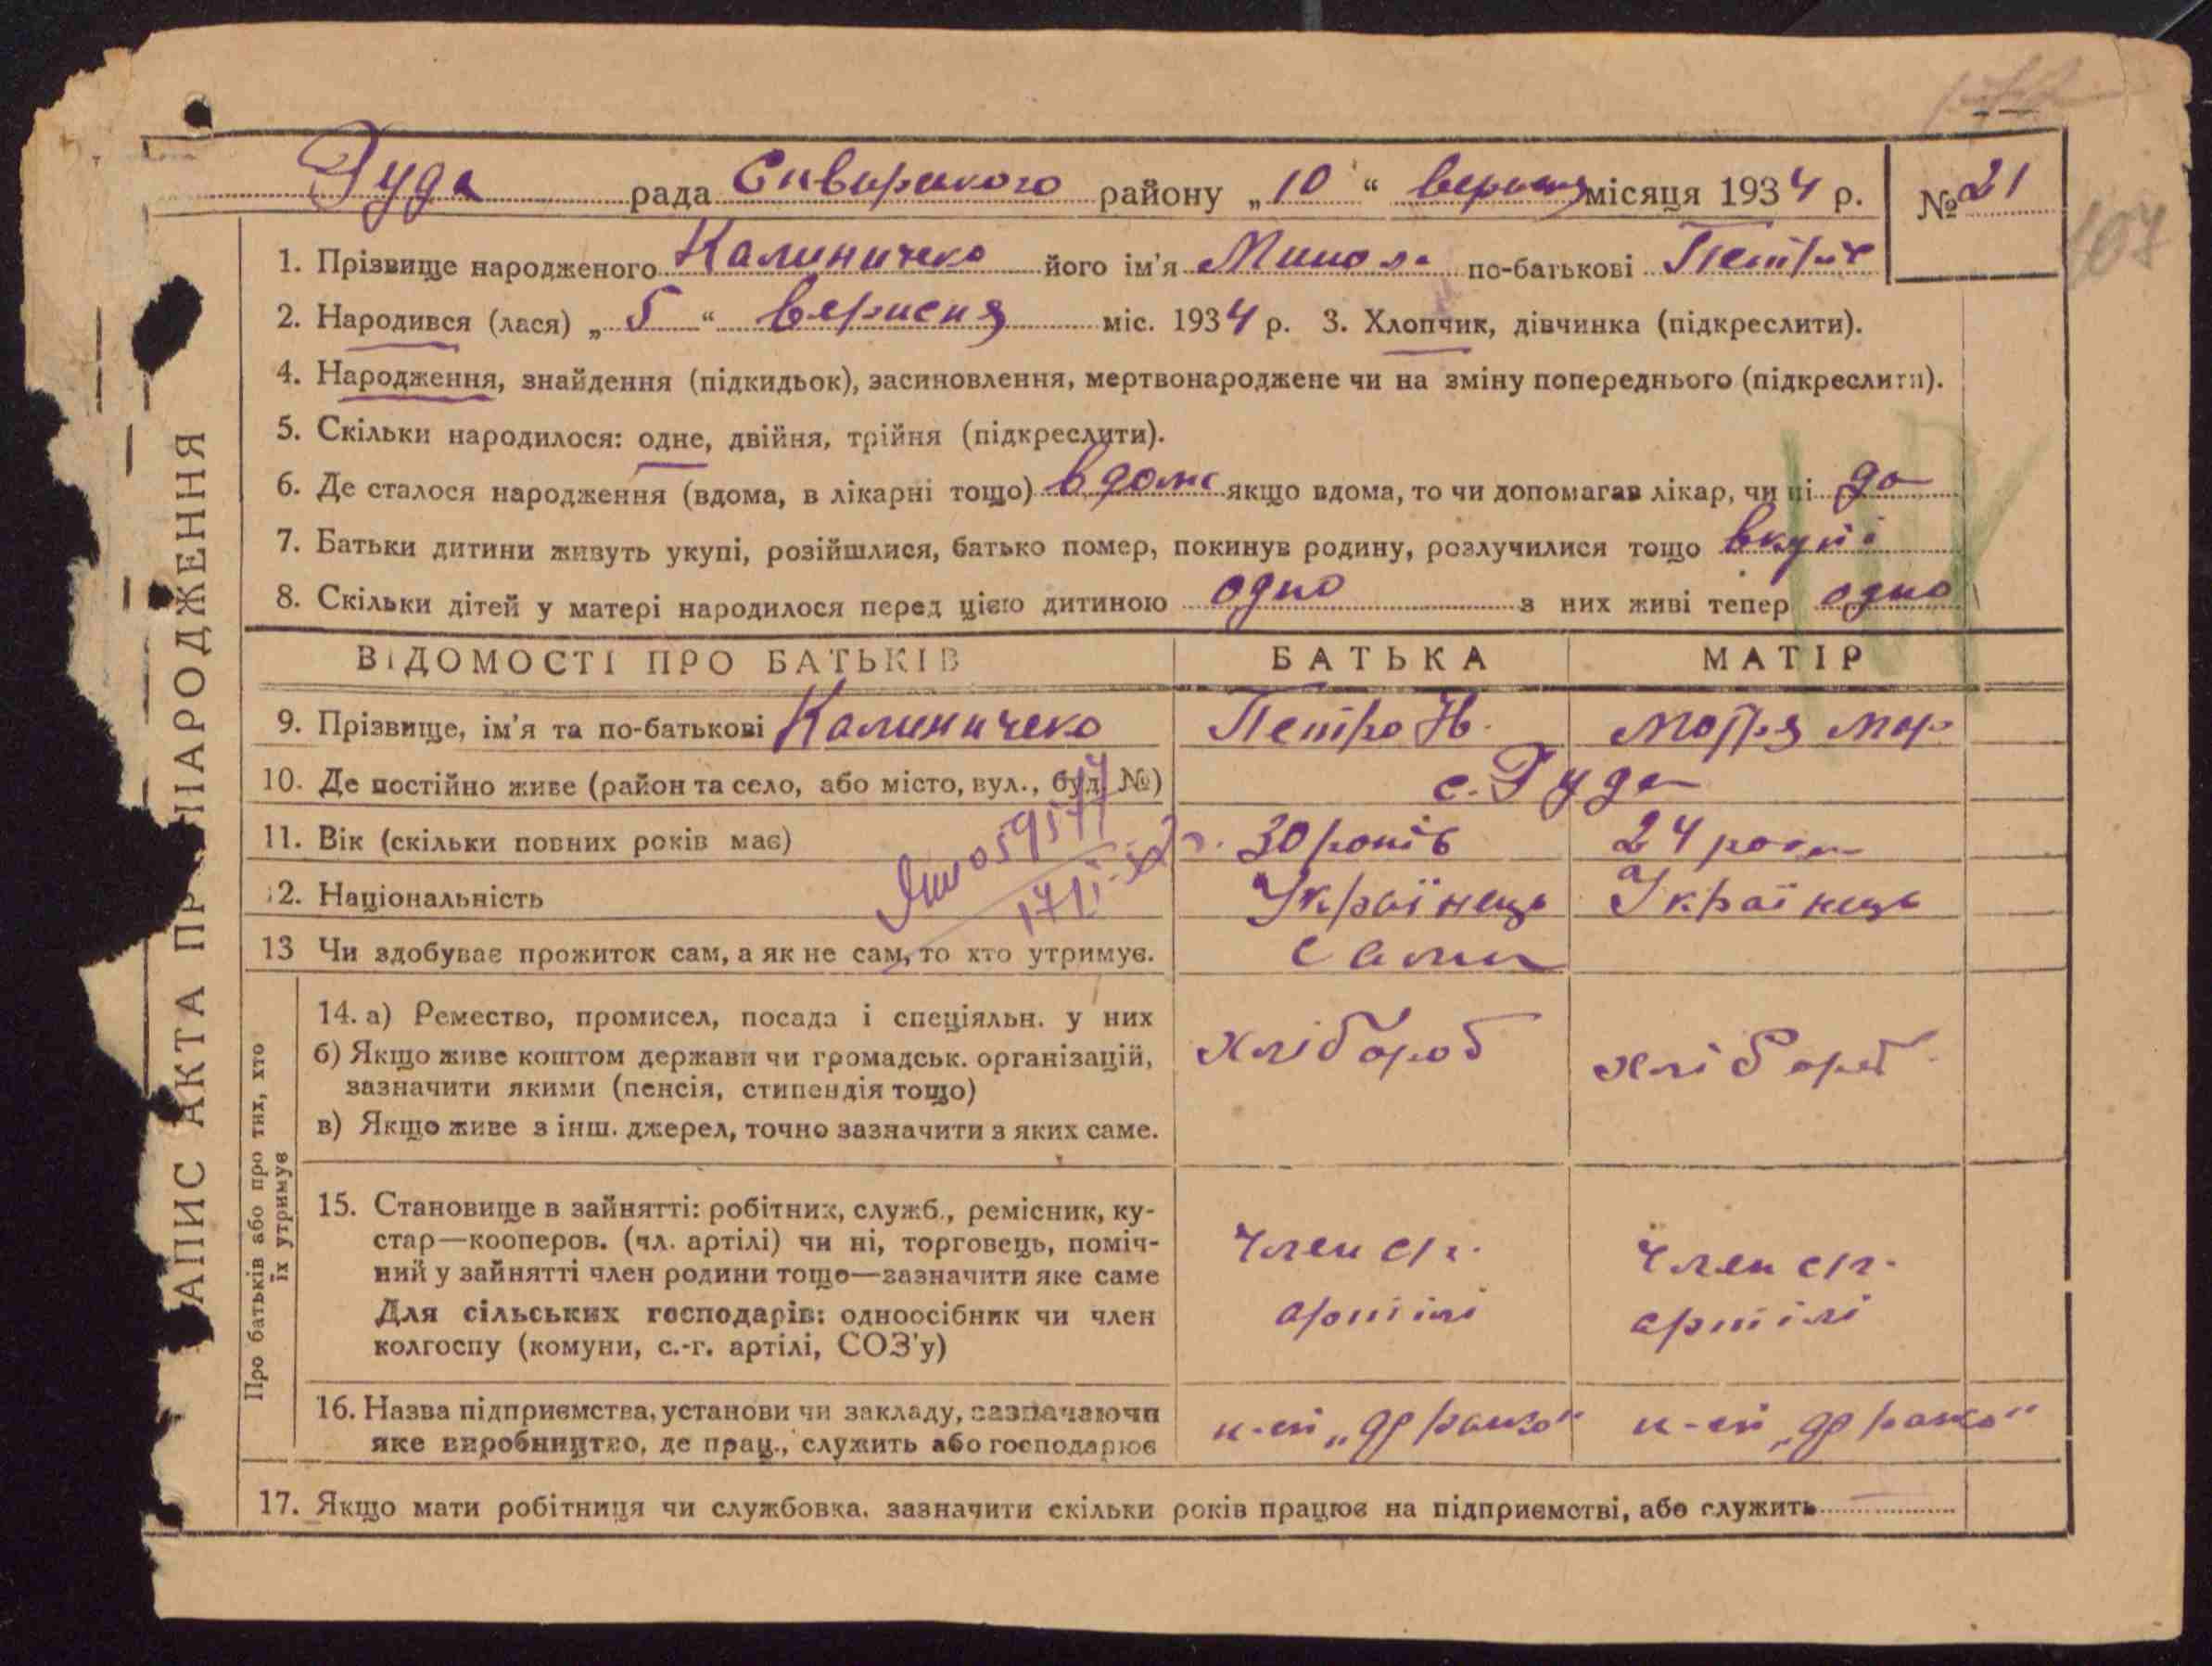 Руда рада Сквирського району „10“ вересня місяця 1934 р. № 21
107
1. Прізвище народженого Калиничеко його ім'я Микола по-батькові Петров
2. Народився (лася) „5“ вересня міс. 1934 р. 3. Хлопчик, дівчинка (підкреслити).
4. Народження, знайдення (підкидьок), засиновлення, мертвонароджене чи на зміну попереднього (підкреслити).
5. Скільки народилося: одне, двійня, трійня (підкреслити).
6. Де сталося народження (вдома, в лікарні тощо) вдома якщо вдома, то чи допомагав лікар, чи ні да
7. Батьки дитини живуть укупі, розійшлися, батько помер, покинув родину, розлучилися тощо вкупі
8. Скільки дітей у матері народилося перед цією дитиною одно з них живі тепер одно
ВІДОМОСТІ ПРО БАТЬКІВ БАТЬКА МАТІР
9. Прізвище, ім'я та по-батькові Калиничеко Петро Н. Мотря Мар
10. Де постійно живе (район та село, або місто, вул., буд. №) с. Руда
11. Вік (скільки повних років має) 30 років 24 роки
12. Національність Українець Українець
13 Чи здобуває прожиток сам, а як не сам, то хто утримує. сами
14. а) Ремество, промисел, посада і спеціяльн. у них хлібороб хлібороб
б) Якщо живе коштом держави чи громадськ. організацій,
зазначити якими (пенсія, стипендія тощо)
в) Якщо живе з інш. джерел, точно зазначити з яких саме.
15. Становище в зайнятті: робітник, служб., ремісник, ку-
стар—кооперов. (чл. артілі) чи ні, торговець, поміч- член с/г. член с/г.
ний у зайнятті член родини тощо—зазначити яке саме
Для сільських господарів: одноосібник чи член артілі артілі
колгоспу (комуни, с.-г. артілі, СОЗ'у)
16. Назва підприємства, установи чи закладу, зазначаючи
яке виробництво, де прац., служить або господарює
17. Якщо мати робітниця чи службовка, зазначити скільки років працює на підприємстві, або служить
АПИС АКТА ПРО НАРОДЖЕННЯ
Про батьків або про тих, хто
їх утримує